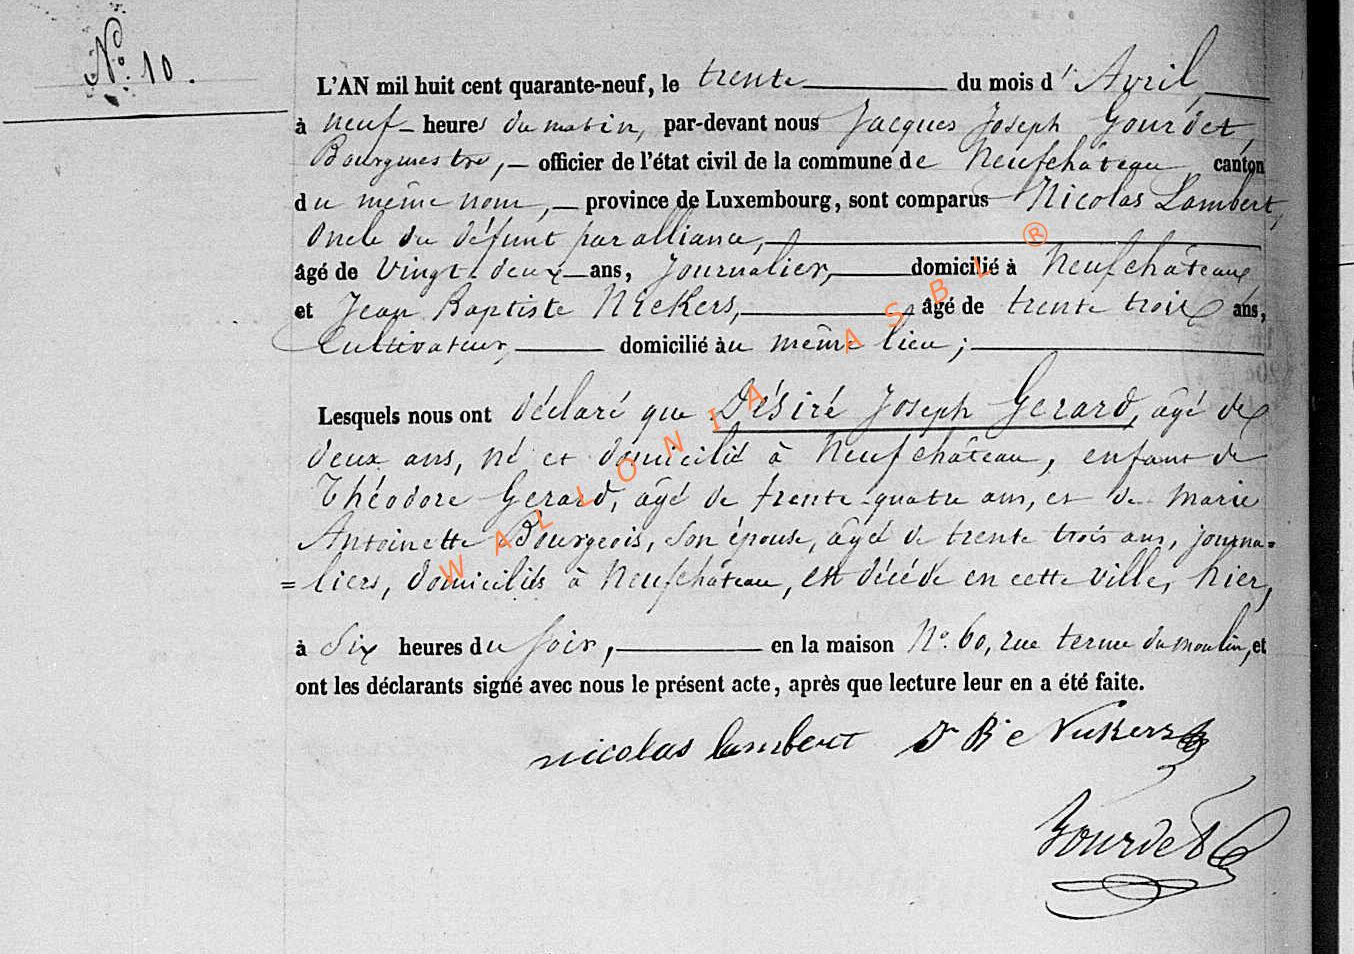 N.° 10.
L'AN mil huit cent quarante-neuf, le trente du mois d'Avril,
à neuf heures du matin, par-devant nous Jacques Joseph Gourdet,
Bourgmestre, officier de l'état civil de la commune de Neufchâteau canton
du même nom, province de Luxembourg, sont comparus Nicolas Lambert,
Oncle du défunt par alliance,
âgé de vingt-deux ans, Journalier, domicilié à Neufchâteau
et Jean Baptiste Nickers, âgé de trente trois ans,
Cultivateur, domicilié au même lieu ;
Lesquels nous ont déclaré que Désiré Joseph Gerard, âgé de
deux ans, né et domicilié à Neufchâteau, enfant de
Théodore Gerard, âgé de trente-quatre ans, et de Marie
Antoinette Bourgeois, son épouse, âgée de trente trois ans, journa=
=liers, domiciliés à Neufchâteau, est décédé en cette ville, hier,
à Six heures du soir, en la maison N.° 60, rue terme du moulin, et
ont les déclarants signé avec nous le présent acte, après que lecture leur en a été faite.
nicolas lambert J Bte Nickers
Gourdet
WALLONIA ASBL ®